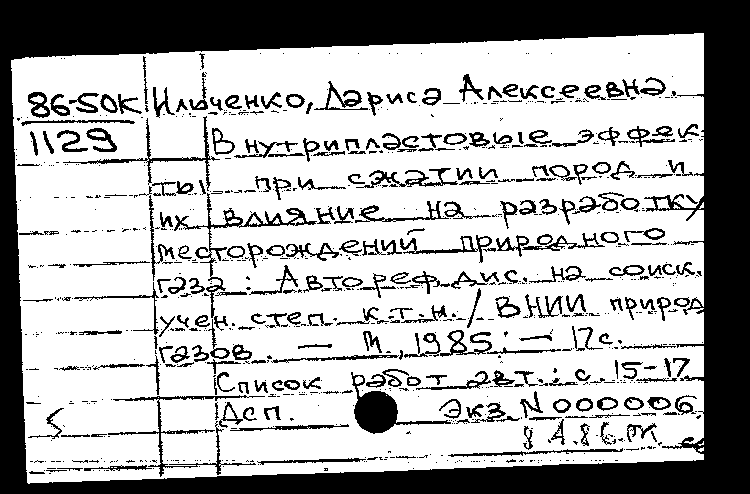 86-50К Ильченко, Лариса Алексеевна.
1129 Внутрипластовые эффек-
ты при сжатии пород и
их влияние на разработку
месторождений природного
газа : Автореф. дис. на соиск.
учен. степ. к.т.н. / ВНИИ природ
газов. — М., 1985. — 17 с.
Список работ авт.: с. 15-17
Дсп. Экз. N 000006.